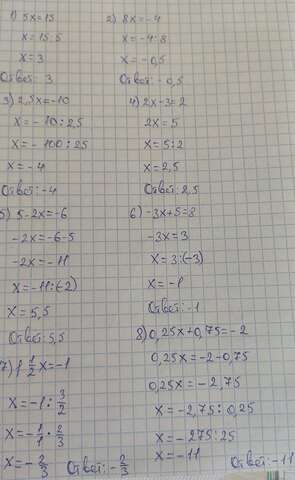 1) 5x=15
x=15:5
x=3
Ответ: 3
2) 8x=-4
x=-4:8
x=-0,5
Ответ: -0,5
3) 2,5x=-10
x=-10:2,5
x=-100:25
x=-4
Ответ: -4
4) 2x-3=2
2x=5
x=5:2
x=2,5
Ответ: 2,5
5) 5-2x=-6
-2x=-6-5
-2x=-11
x=-11:(-2)
x=5,5
Ответ: 5,5
6) -3x+5=8
-3x=3
x=3:(-3)
x=-1
Ответ: -1
7) 1 1/2 x=-1
x=-1: 3/2
x=-1/1 · 2/3
x=-2/3
Ответ: -2/3
8) 0,25x+0,75=-2
0,25x=-2-0,75
0,25x=-2,75
x=-2,75:0,25
x=-275:25
x=-11
Ответ: -11